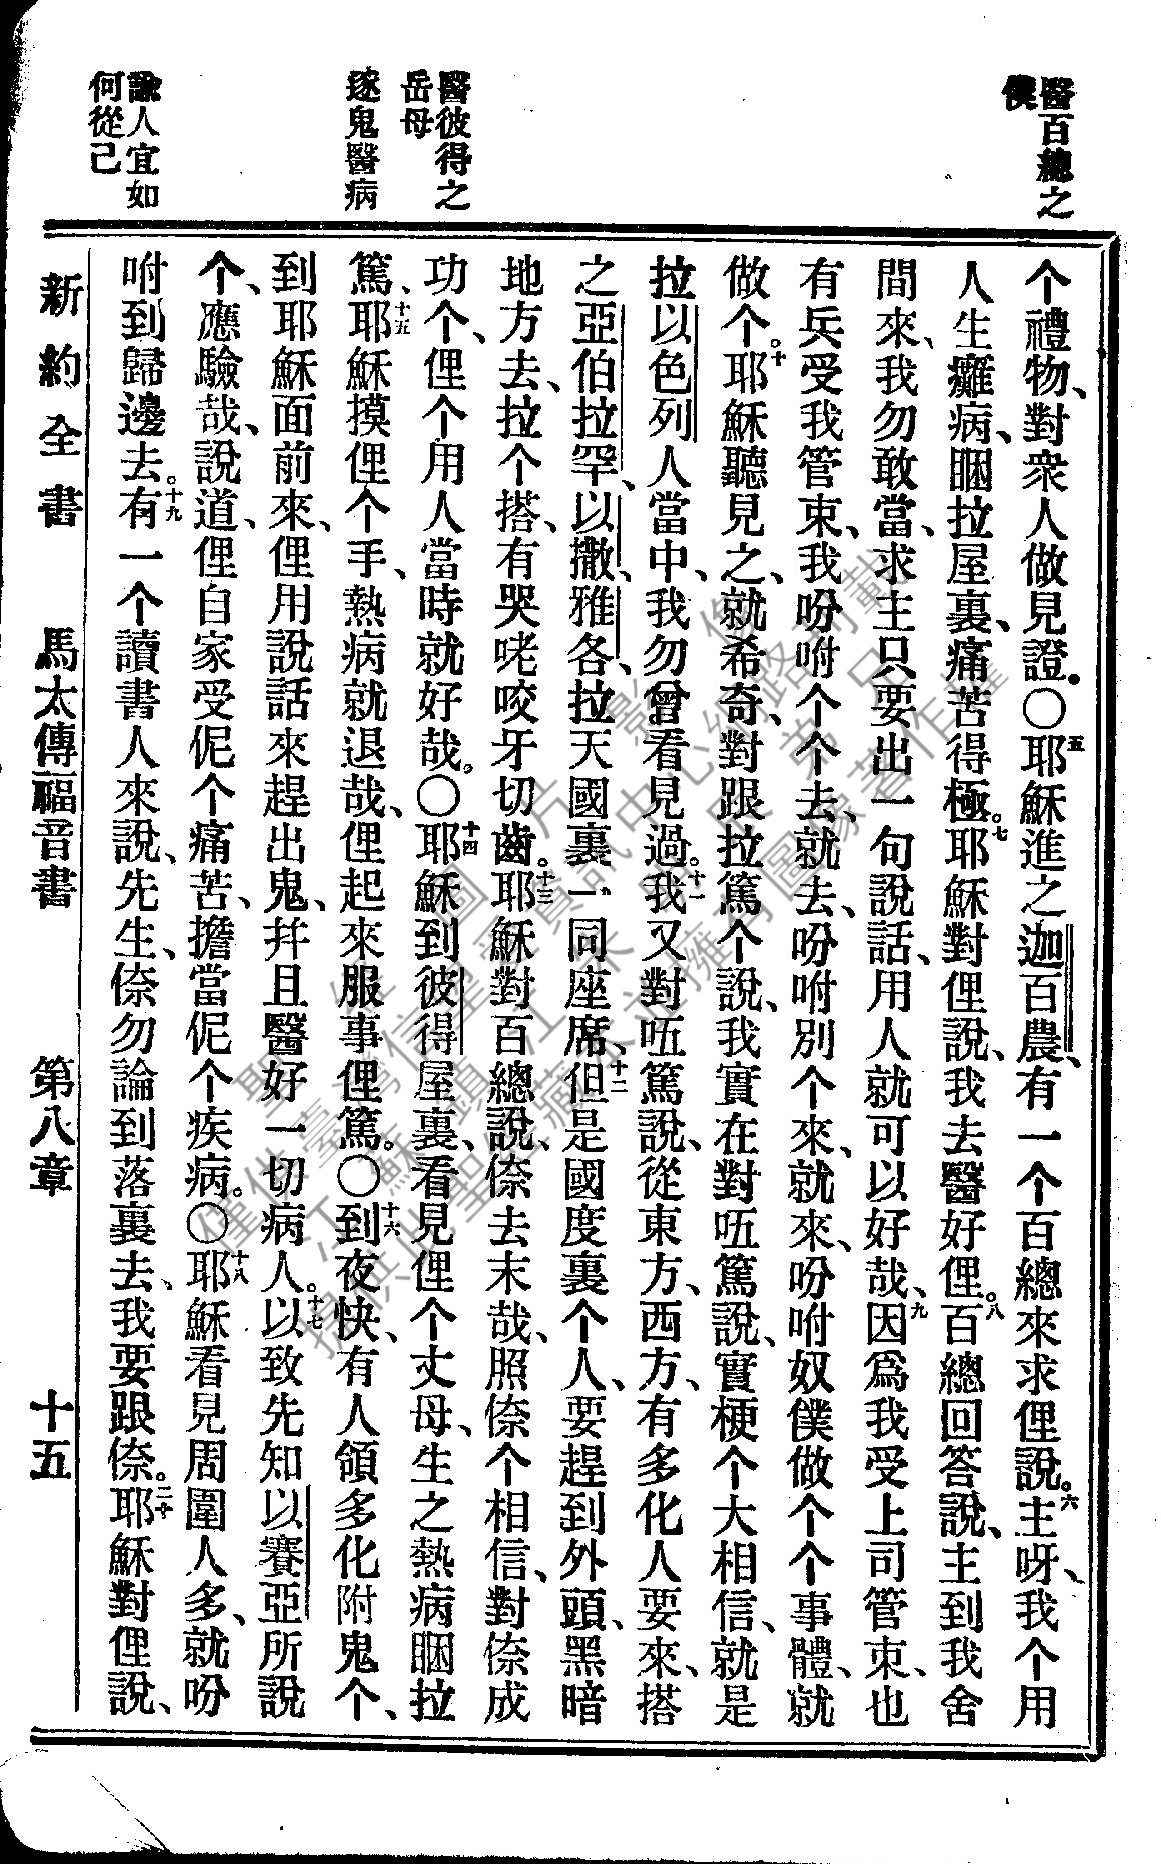 醫百總之
僕
醫彼得之
岳母
逐鬼醫病
諭人宜如
何從己
个禮物、對衆人做見證。〇五耶穌進之迦百農、有一个百總來求俚說。六主呀、我个用
人生癱病、睏拉屋裏、痛苦得極。七耶穌對俚說、我去醫好俚。八百總回答說、主到我舍
間來、我勿敢當、求主只要出一句說話、用人就可以好哉、九因爲我受上司管束、也
有兵受我管束、我吩咐个个去、就去、吩咐別个來、就來、吩咐奴僕做个个事體、就
做个。十耶穌聽見之、就希奇、對跟拉篤个說、我實在對㕶篤說、實梗个大相信、就是
拉以色列人當中、我勿曾看見過。十一我又對㕶篤說、從東方、西方、有多化人要來、搭
之亞伯拉罕、以撒、雅各、拉天國裏一同座席、十二但是國度裏个人、要趕到外頭、黑暗
地方去、拉个搭、有哭咾咬牙切齒。十三耶穌對百總說、倷去末哉、照倷个相信、對倷成
功个、俚个用人當時就好哉。〇十四耶穌到彼得屋裏、看見俚个丈母、生之熱病睏拉
篤、十五耶穌摸俚个手、熱病就退哉、俚起來服事俚篤。〇十六到夜快、有人領多化附鬼个、
到耶穌面前來、俚用說話來趕出鬼、幷且醫好一切病人。十七以致先知以賽亞所說
个、應驗哉、說道、俚自家受伲个痛苦、擔當伲个疾病。〇十八耶穌看見周圍人多、就吩
咐到歸邊去。十九有一个讀書人來說、先生、倷勿論到落裏去、我要跟倷。二十耶穌對俚說、
新約全書 馬太傳福音書 第八章 十五
僅供臺灣信望愛資訊中心網路刊載